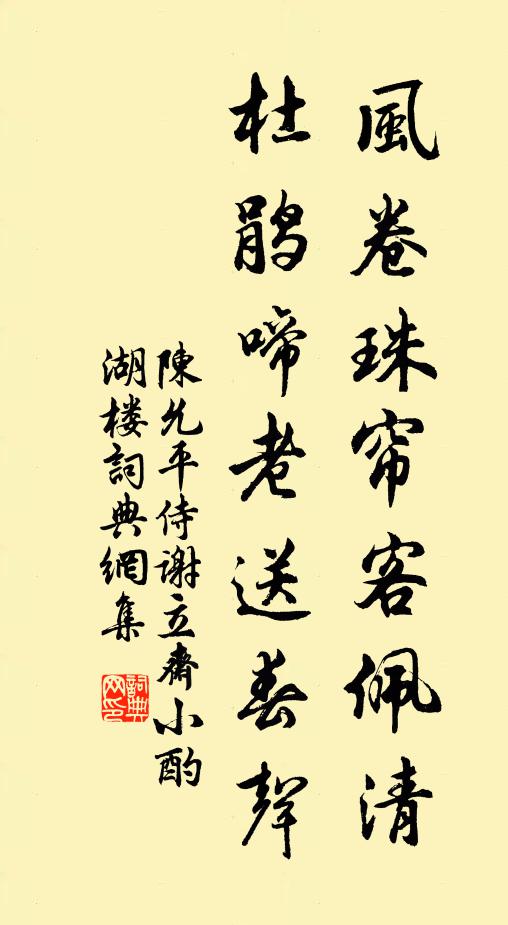 風卷珠帘客佩清
杜鹃啼老送春聲
陳允平侍謝立齋小酌
湖楼詞典網集
詞典网印